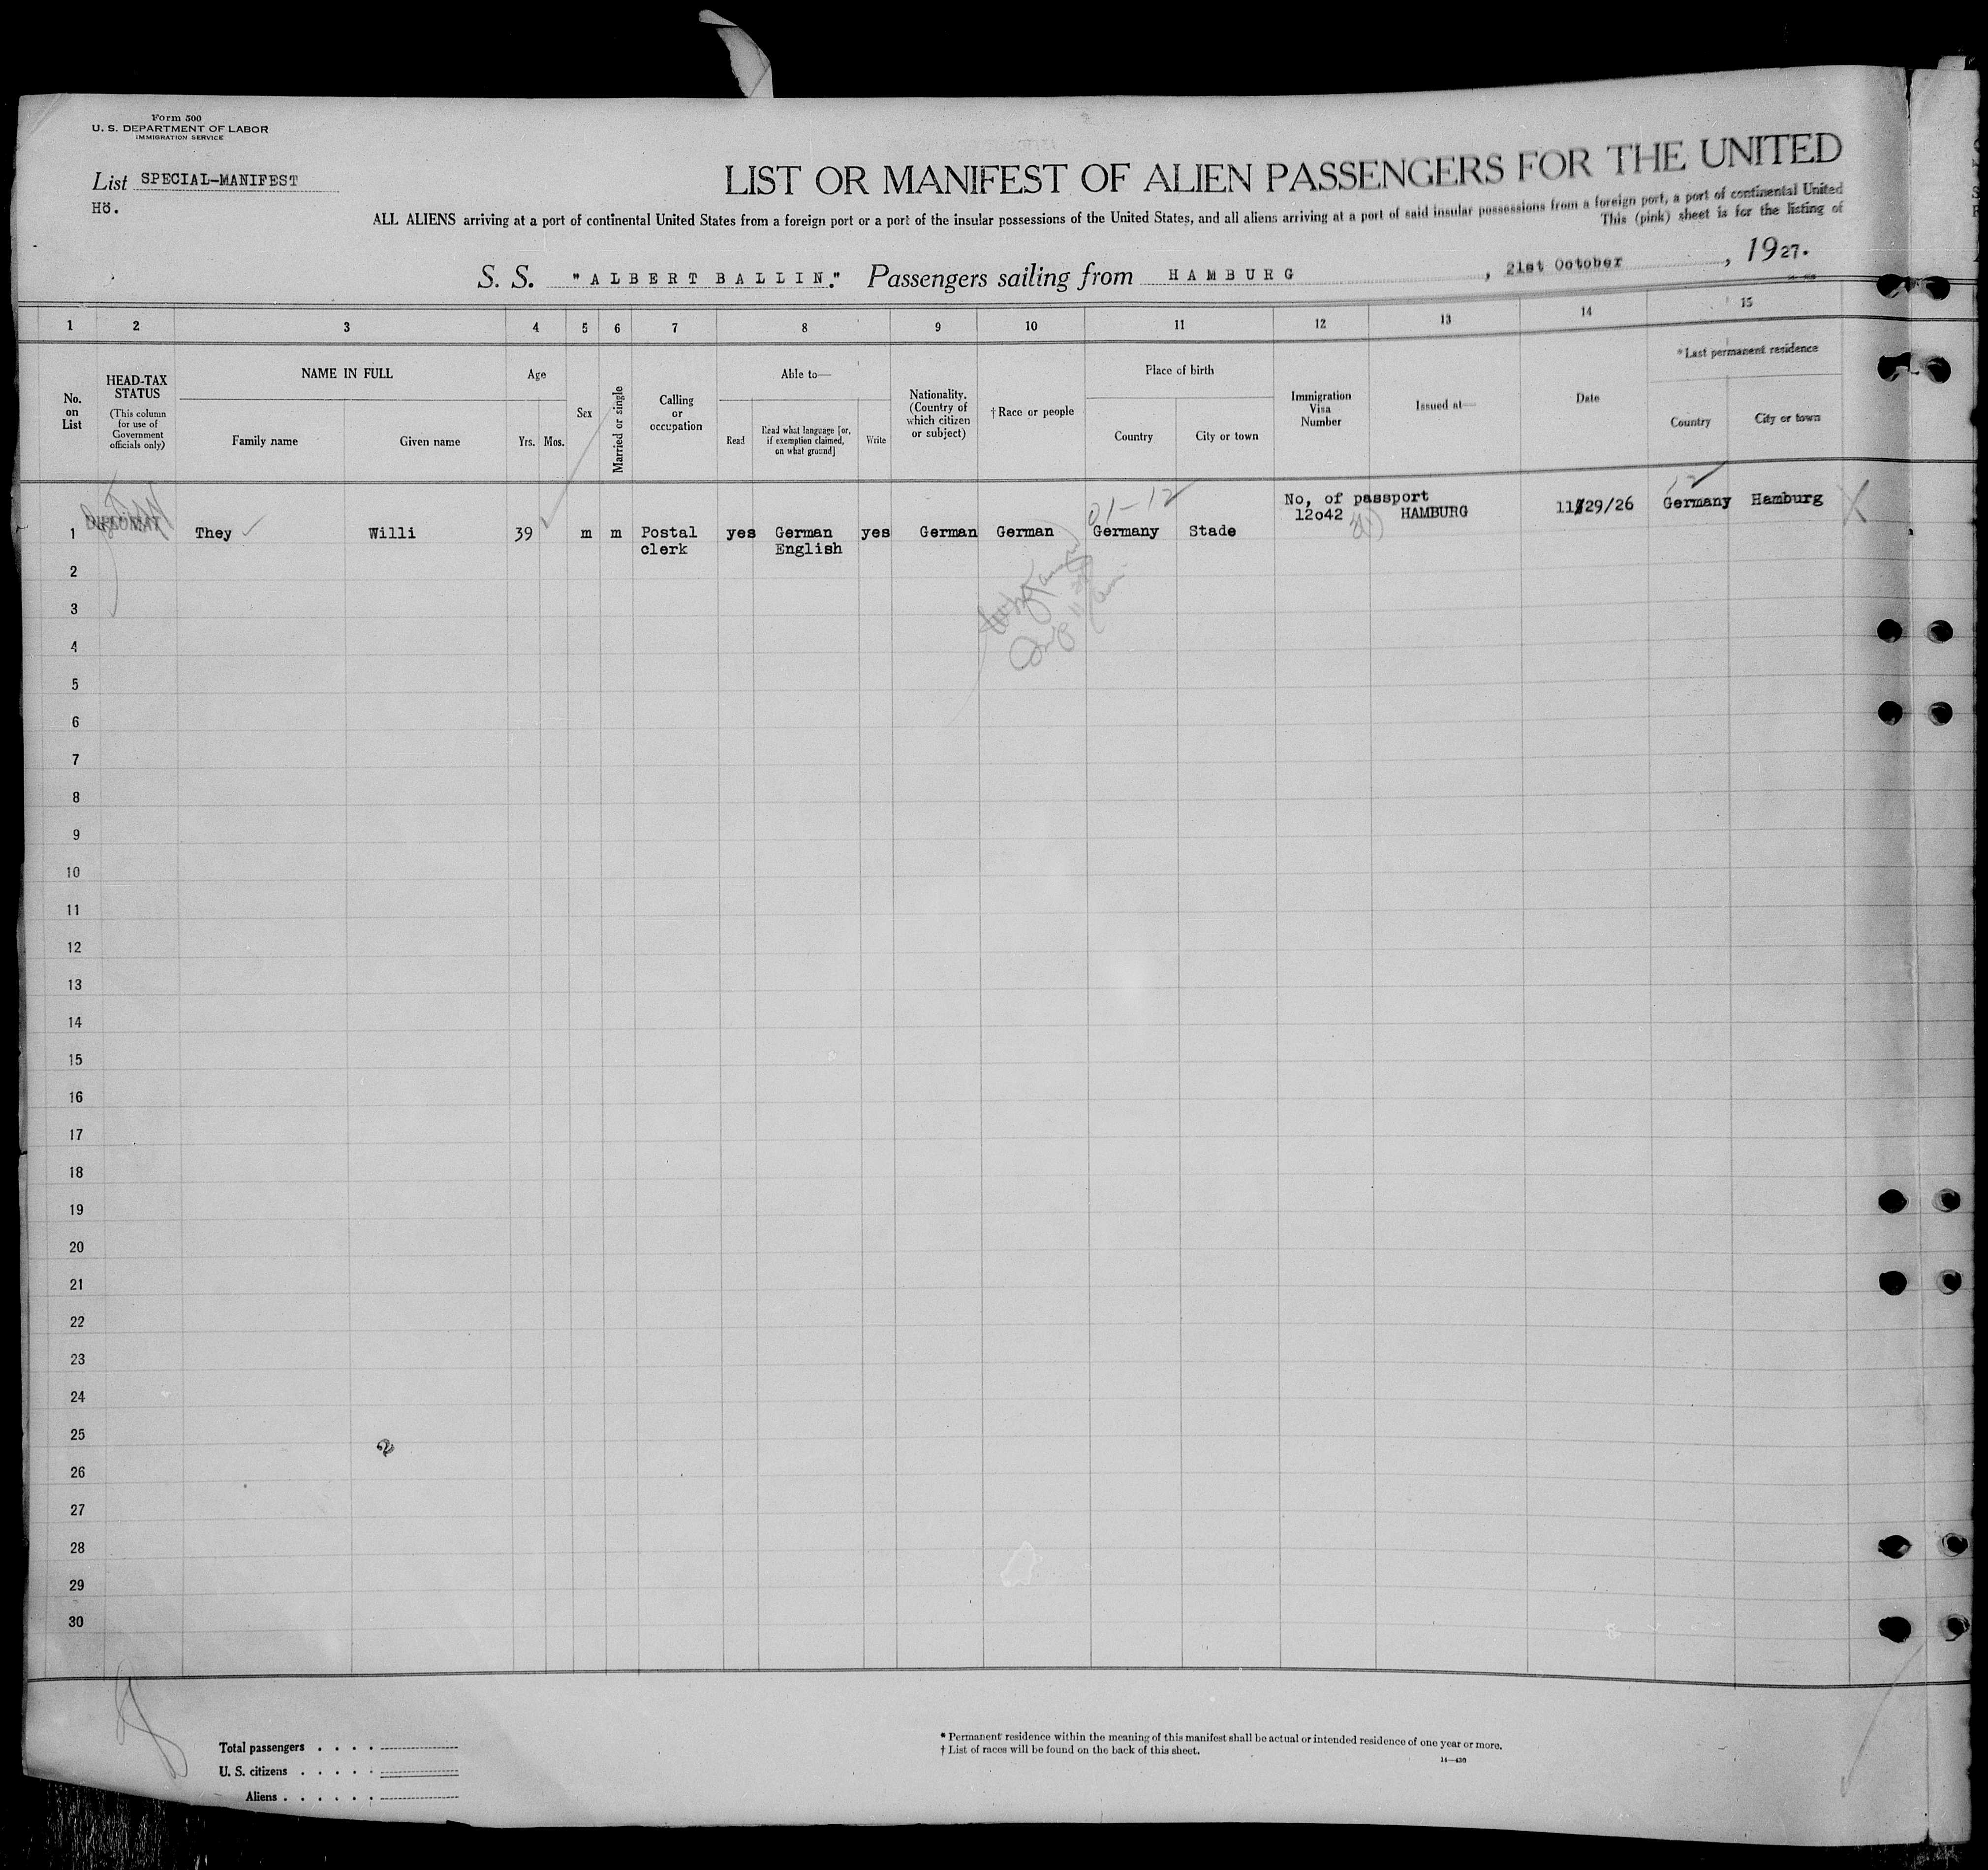 Form 500
U. S. DEPARTMENT OF LABOR
IMMIGRATION SERVICE
List SPECIAL-MANIFEST
Hö.
LIST OR MANIFEST OF ALIEN PASSENGERS FOR THE UNITED
ALL ALIENS arriving at a port of continental United States from a foreign port or a port of the insular possessions of the United States, and all aliens arriving at a port of said insular possessions from a foreign port, a port of continental United
This (pink) sheet is for the listing of
S. S. "ALBERT BALLIN." Passengers sailing from HAMBURG, 21st October, 1927.
1 2 3 4 5 6 7 8 9 10 11 12 13 14 15
No. on List
HEAD-TAX STATUS
(This column for use of Government officials only)
NAME IN FULL
Family name Given name
Age
Yrs. Mos.
Sex
Married or single
Calling or occupation
Able to—
Read
Read what language [or, if exemption claimed, on what ground]
Write
Nationality. (Country of which citizen or subject)
†Race or people
Place of birth
Country City or town
Immigration Visa Number
Issued at—
Date
*Last permanent residence
Country City or town
01-12
No, of passport
1 They Willi 39 m m Postal clerk yes German English yes German German Germany Stade 12o42 HAMBURG 11/29/26 Germany Hamburg
2
3
4
5
6
7
8
9
10
11
12
13
14
15
16
17
18
19
20
21
22
23
24
25
26
27
28
29
30
Total passengers . . . .
U. S. citizens . . . . .
Aliens . . . . . .
* Permanent residence within the meaning of this manifest shall be actual or intended residence of one year or more.
† List of races will be found on the back of this sheet.